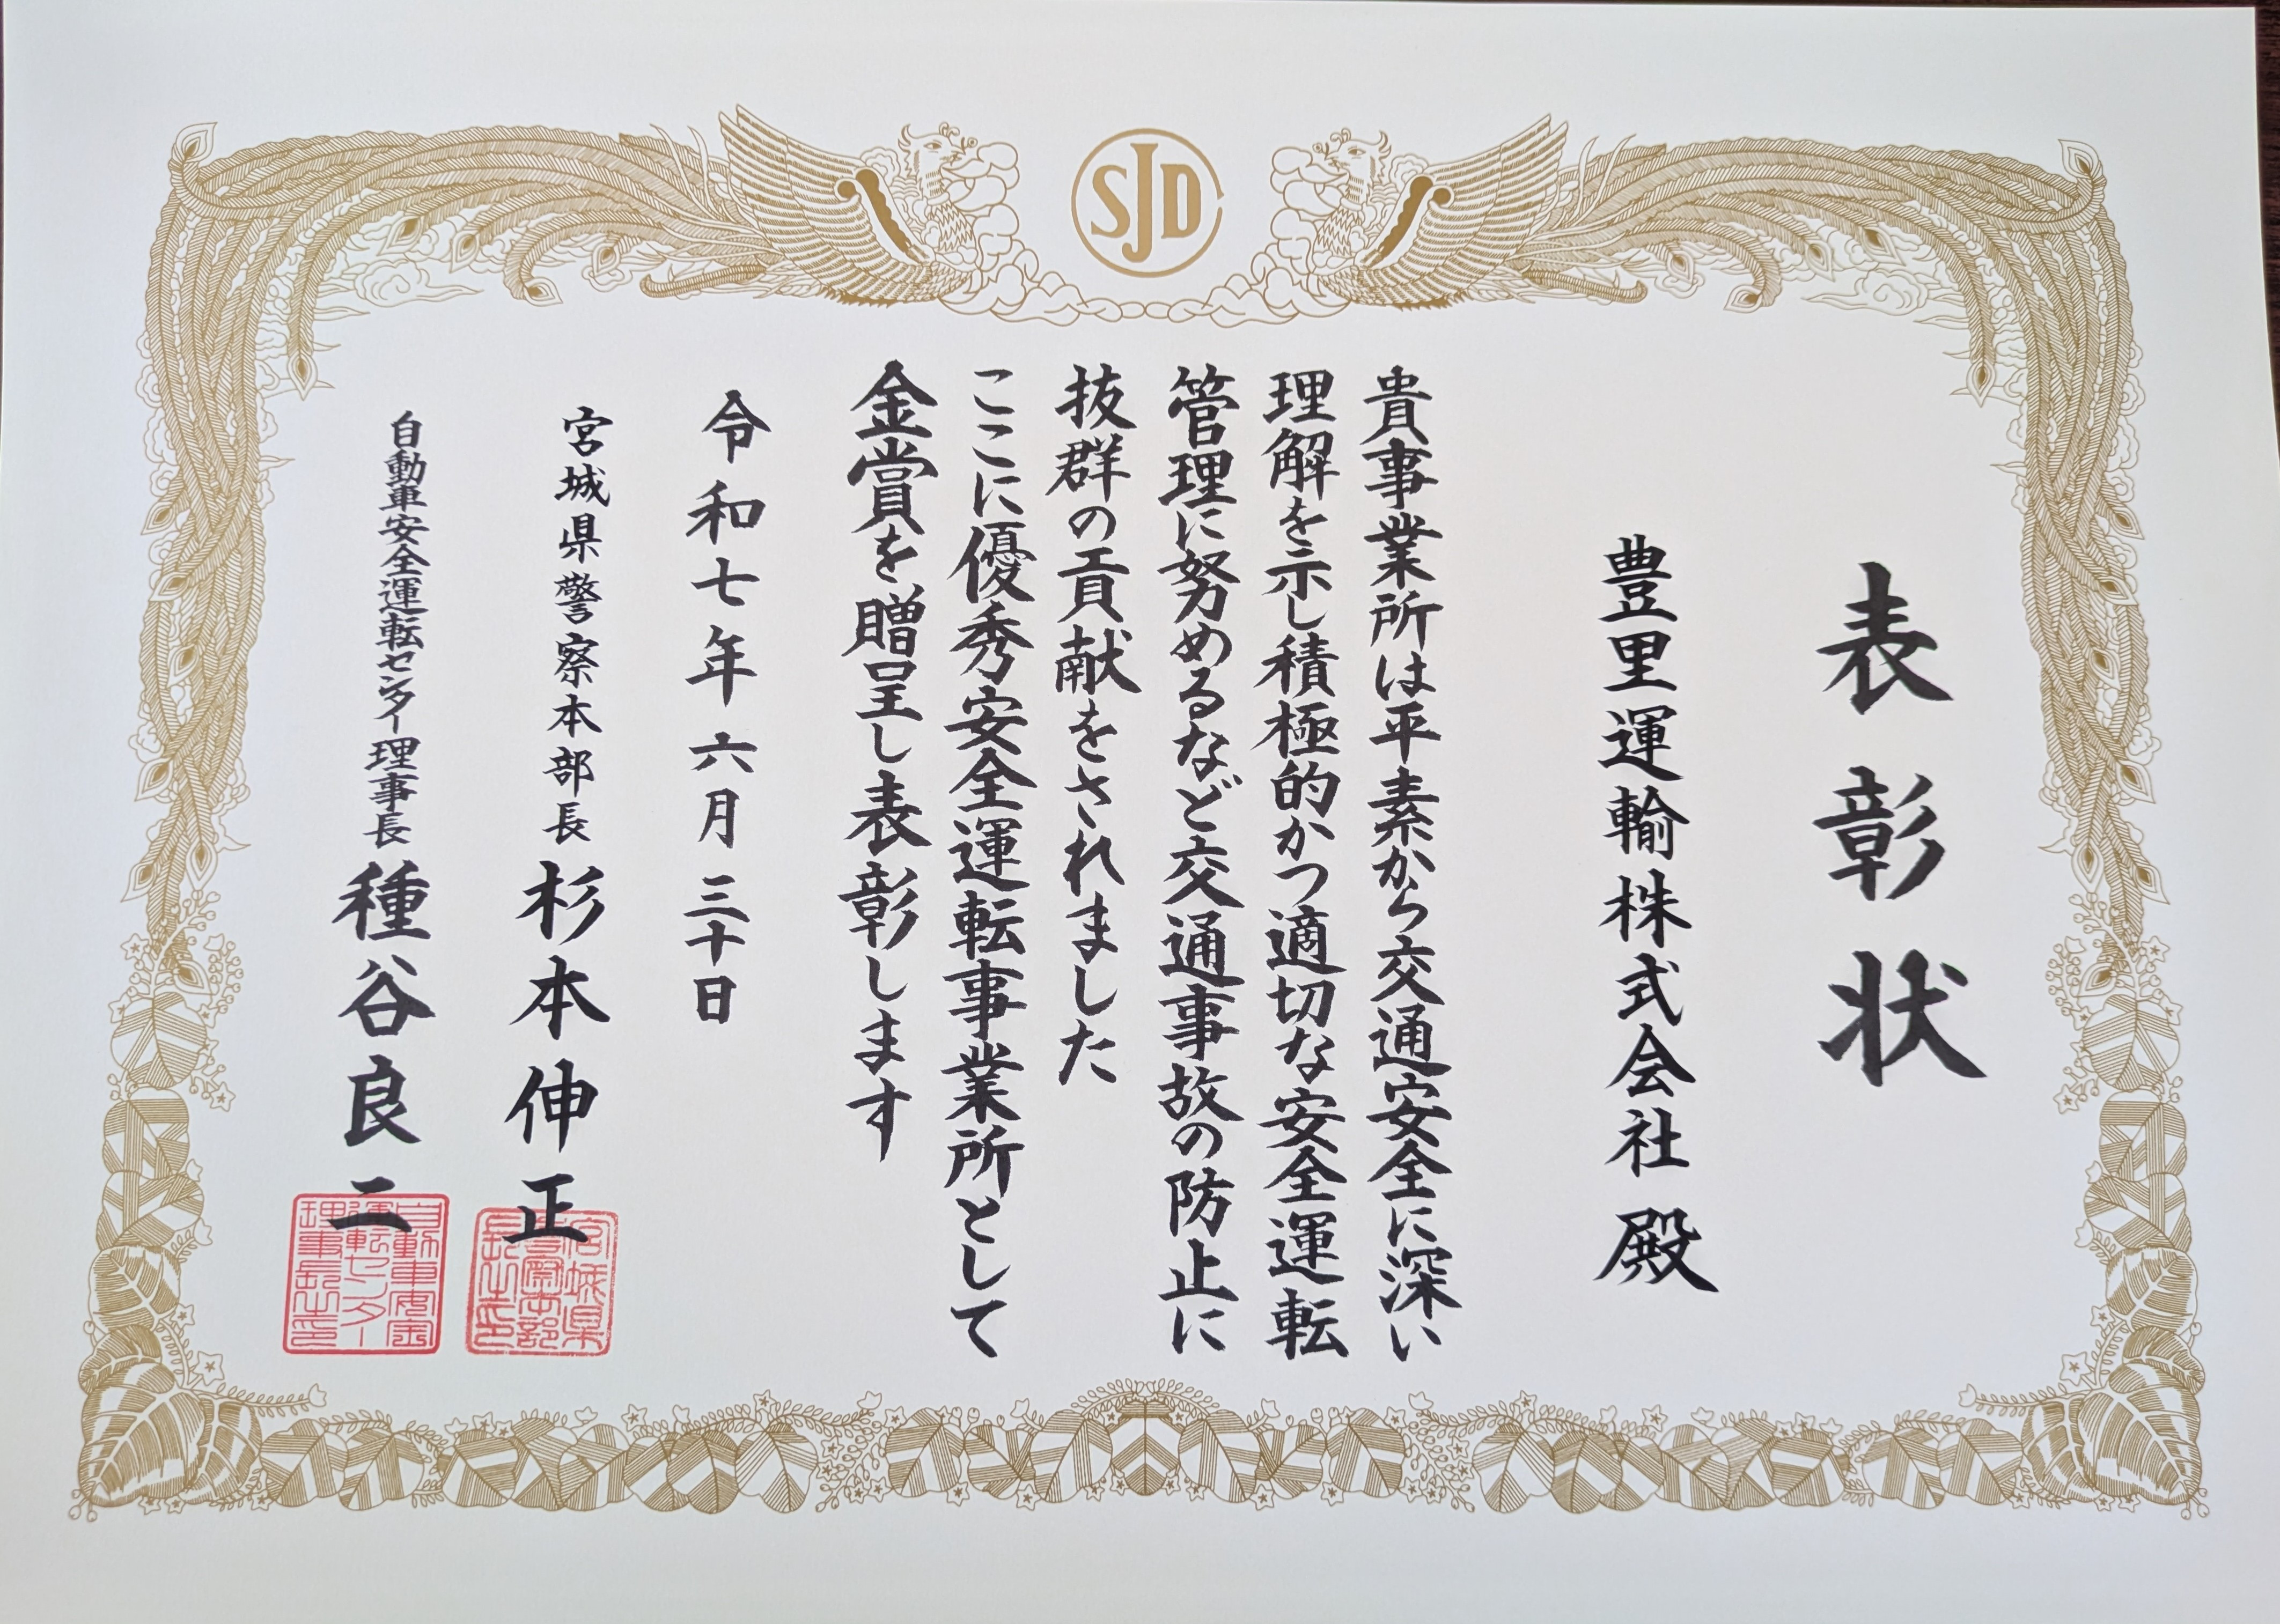 SJD
表彰状
豊里運輸株式会社 殿
貴事業所は平素から交通安全に深い
理解を示し積極的かつ適切な安全運転
管理に努めるなど交通事故の防止に
抜群の貢献をされました
ここに優秀安全運転事業所として
金賞を贈呈し表彰します
令和七年六月三十日
宮城県警察本部長 杉本伸正
宮城県
警察本部
長之印
自動車安全運転センター理事長 種谷良二
自動車安全
運転センター
理事長之印